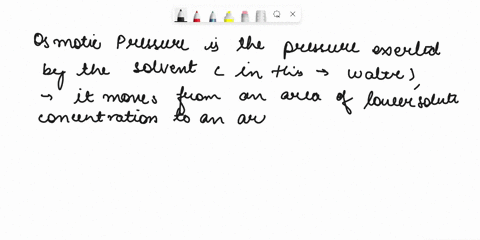 Osmotic Pressure is the pressure exerted
by the solvent ( in this → water)
→ it moves from an area of lower solute
concentration to an ar